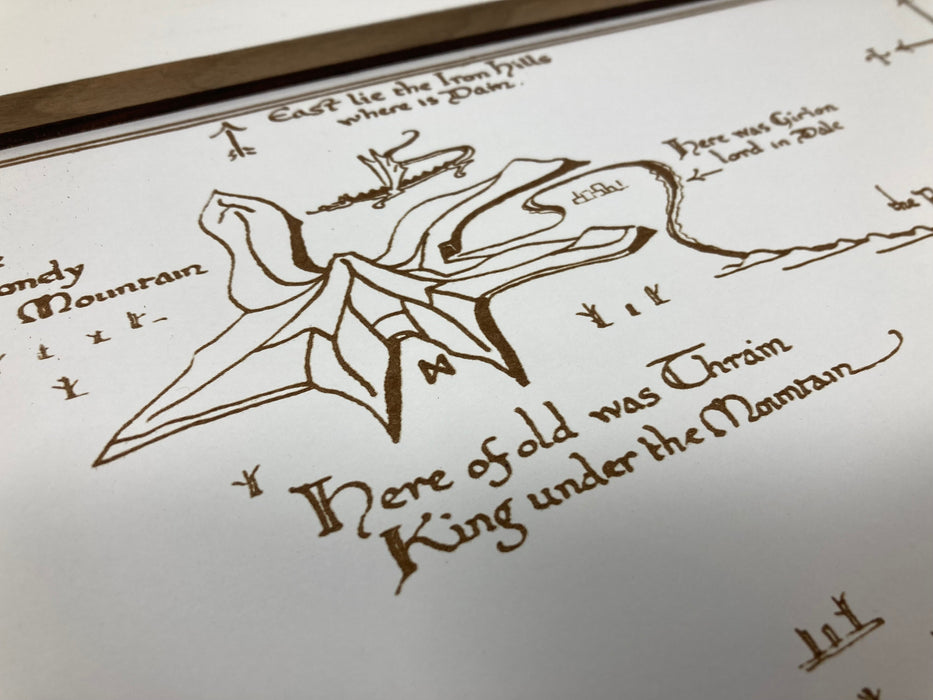 East lie the Iron Hills
where is Dain.
Here was Girion
Lord in Dale
Mountain
ᛞ
Here of old was Thrain
King under the Mountain